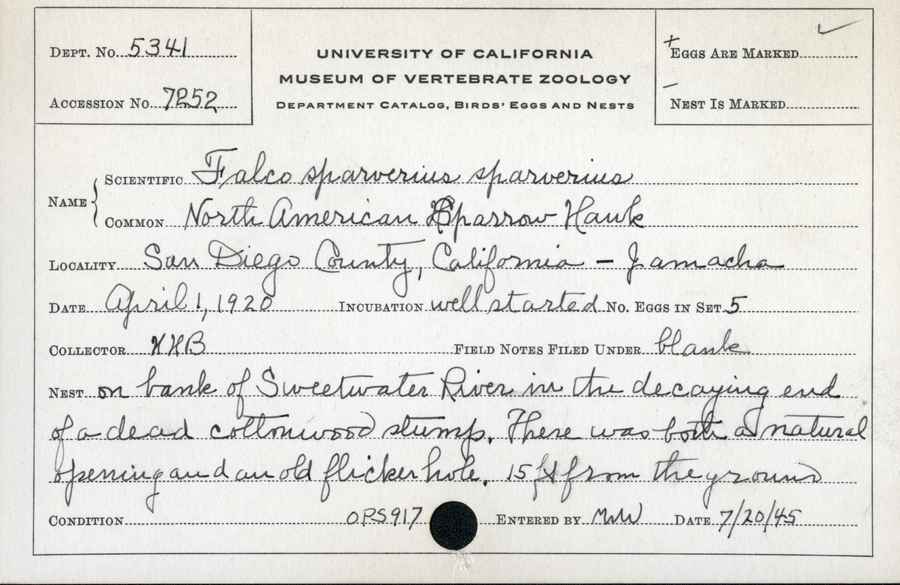 DEPT. No. 5341
ACCESSION No. 7252
UNIVERSITY OF CALIFORNIA
MUSEUM OF VERTEBRATE ZOOLOGY
DEPARTMENT CATALOG, BIRDS' EGGS AND NESTS
+ EGGS ARE MARKED ✓
- NEST IS MARKED
NAME
SCIENTIFIC Falco sparverius sparverius
COMMON North American Sparrow Hawk
LOCALITY San Diego County, California – Jamacha
DATE April 1, 1920 INCUBATION well started No. EGGS IN SET 5
COLLECTOR FIELD NOTES FILED UNDER blank
NEST on bank of Sweetwater River in the decaying end
of a dead cottonwood stump. There was both a natural
opening and an old flicker hole. 15 ft from the ground
CONDITION OPS917 ENTERED BY MWW DATE 7/20/45